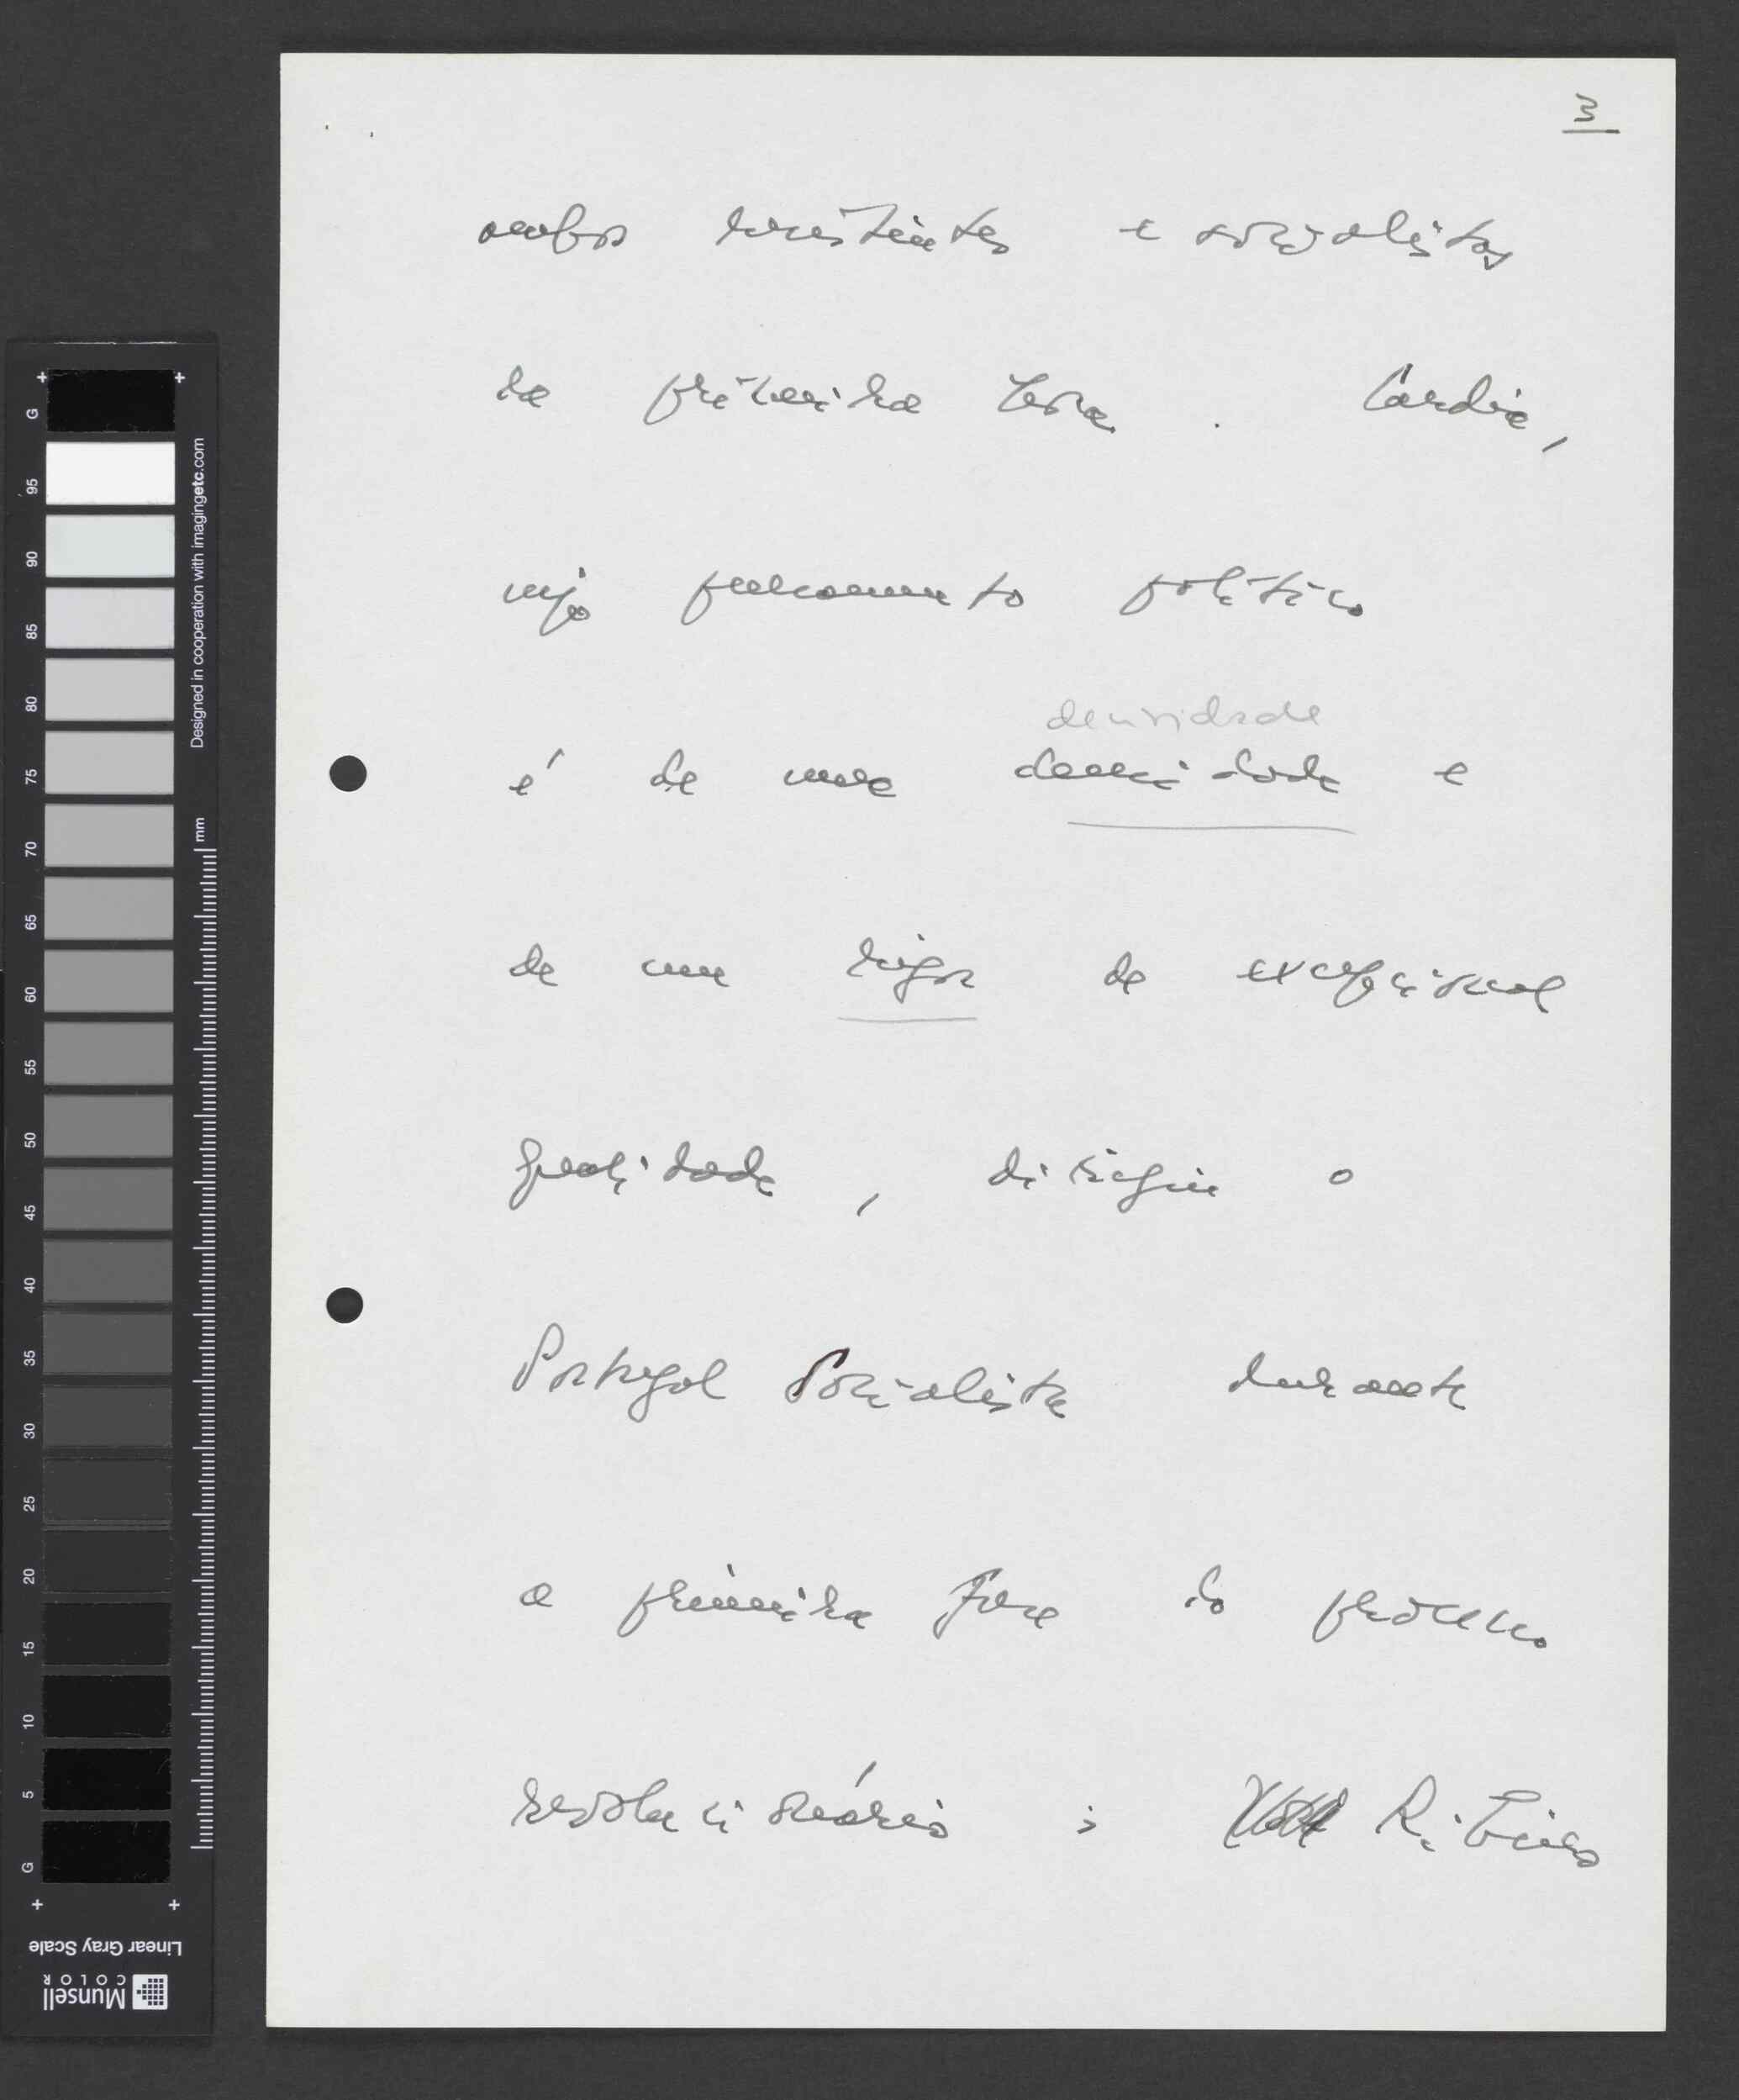 3
ambos resistentes e socialistas
da primeira hora. Cardia,
cujo pensamento político
densidade
é de uma densidade e
de um rigor de excepcional
qualidade, dirigiu o
Portugal Socialista durante
a primeira fase do processo
revolucionário; Ribeiro
G
95
90
85
80
75
70
65
60
55
50
45
40
35
30
25
20
15
10
5
G
mm
Designed in cooperation with imagingetc.com
Linear Gray Scale
Munsell
COLOR